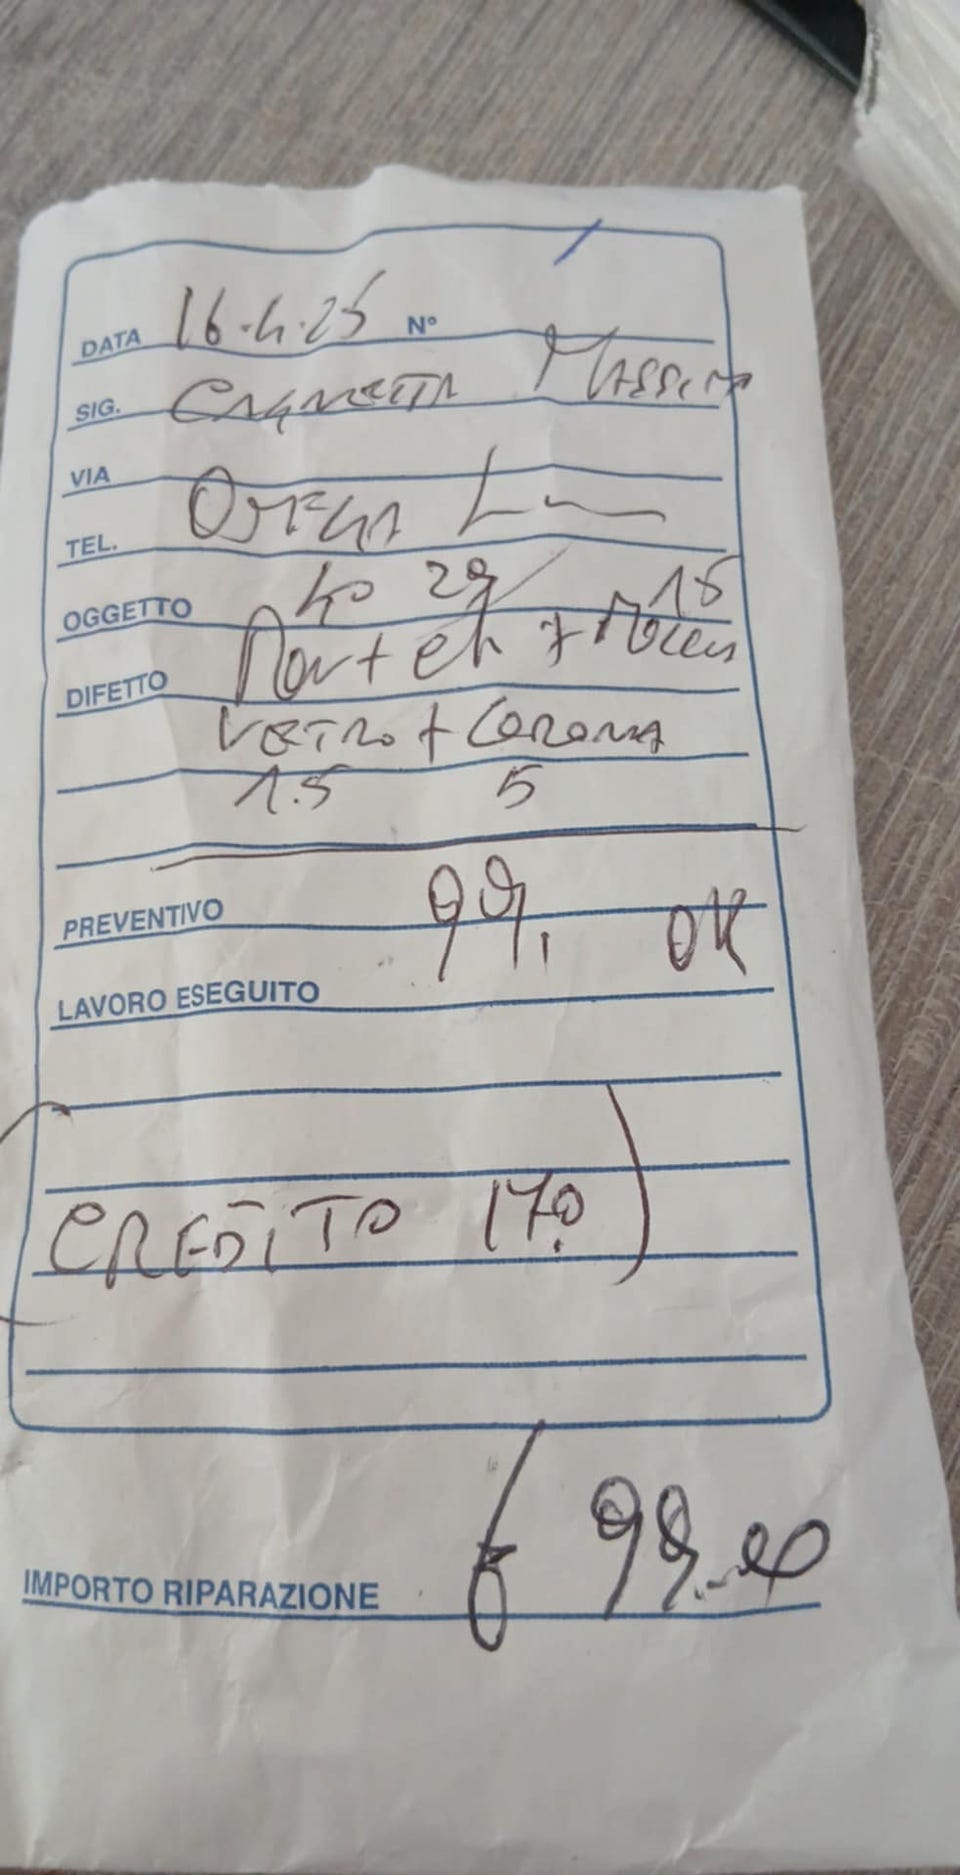 DATA 16.4.25 N°
SIG.
VIA
OMEGA
TEL.
40 29/ 15
OGGETTO
DIFETTO
VETRO + CORONA
1.5 5
PREVENTIVO 99, OK
LAVORO ESEGUITO
CREDITO 170
IMPORTO RIPARAZIONE 99.00